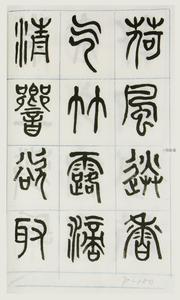 荷風送香
气竹露滴
清響欲取